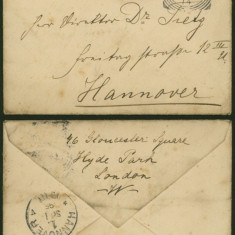 Herr Direktor Dr Tietz
straße 12 III
Hannover
46 Gloucester Square
Hyde Park
London
W
HANNOVER
1